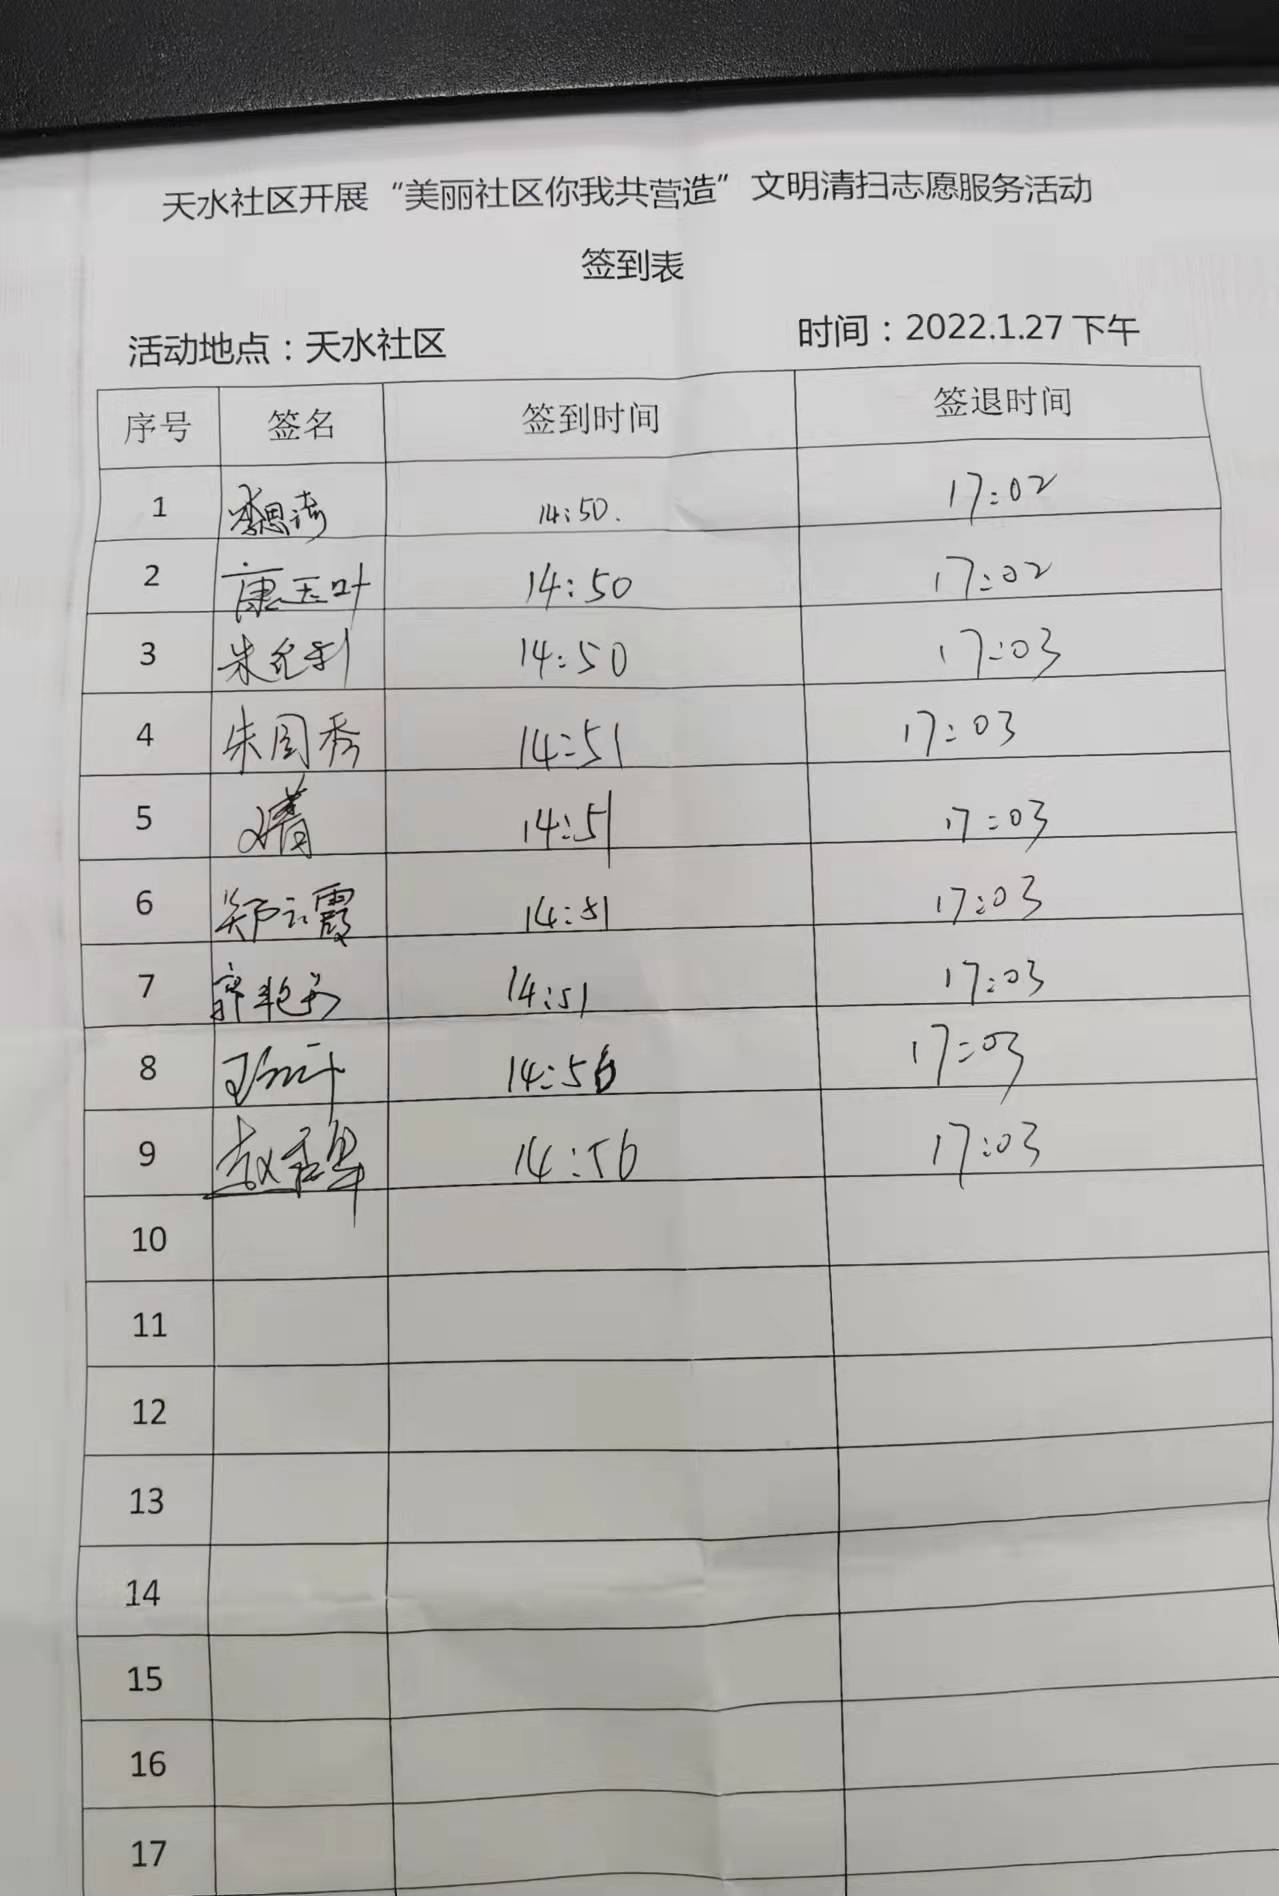 天水社区开展“美丽社区你我共营造”文明清扫志愿服务活动
签到表
活动地点：天水社区 时间：2022.1.27下午
序号 签名 签到时间 签退时间
1 李思琦 14:50. 17:02
2 康玉叶 14:50 17:02
3 朱允利 14:50 17:03
4 朱国秀 14:51 17:03
5 14:51 17:03
6 郑云霞 14:51 17:03
7 14:51 17:03
8 14:56 17:03
9 14:56 17:03
10
11
12
13
14
15
16
17